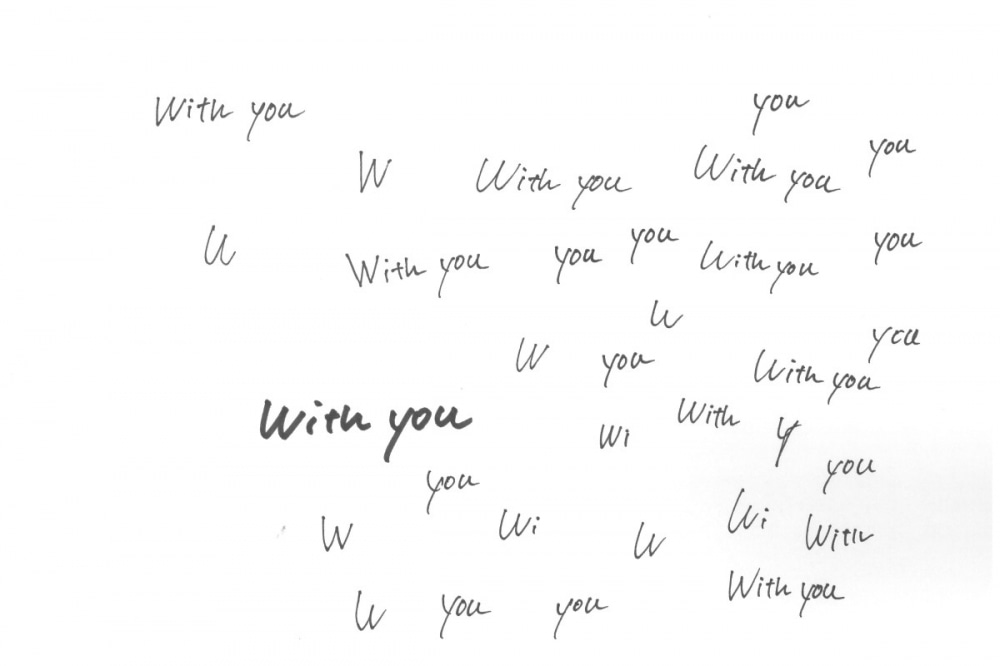 With you you
W With you With you you
W With you you you With you you
W
W you With you you
With you Wi With y
you you
W Wi W Wi With
W you you With you